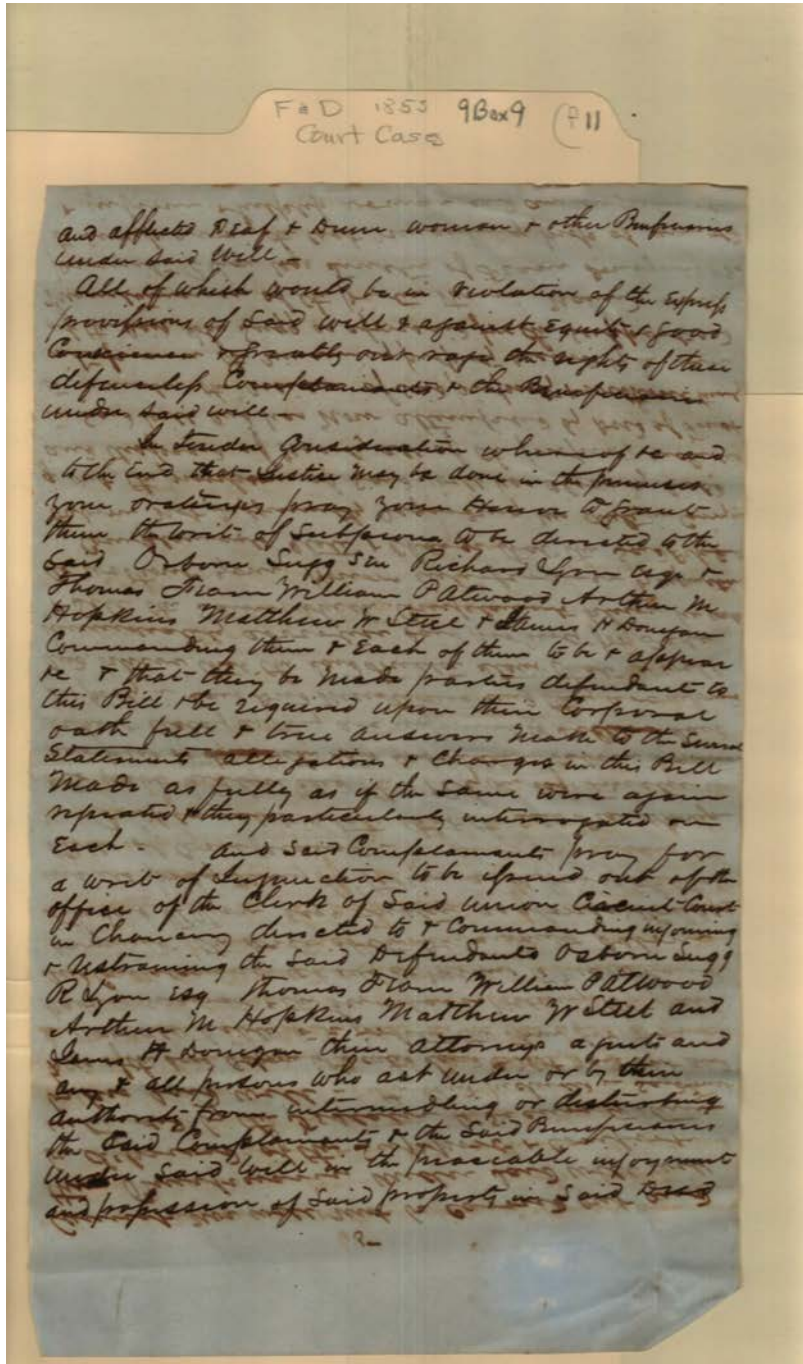 F & D 1855 9Box9 (F 11
Court Case
and afflicted Deaf & Dum woman & other Beneficiaries
under said Will –
All of which would be in violation of the Express
provisions of Said will & against Equity & good
Concience & greatly out rage the rights of these
defenceless Complainants & the Beneficiaries
under said will –
In tender Consideration whereof &c and
to the End that Justice may be done in the premises
your oratrixes pray your Honor to grant
them the writ of Subpoena to be directed to the
Said Osborn Sugg Richard Lyon Esqr &
Thomas William P Atwood Arthur M
Hopkins Matthew W Steel & James H Donegan
Commanding them & Each of them to be & appear
&c & that they be made parties defendant to
this Bill & be required upon their Corporal
oath full & true answers make to the Several
Statements allegations & Charges in this Bill
Made as fully as if the Same were again
repeated & they particularly interrogated on
Each – And Said Complainants pray for
a writ of Injunction to be issued out of the
office of the Clerk of Said Union Circuit Court
in Chancery directed to & Commanding injoining
& Restraining the Said Defendants Osborn Sugg
R Lyon Esq Thomas William P Atwood
Arthur M Hopkins Matthew W Steel and
James H Donegan their attorneys agents and
any & all persons who act under or by their
authority from intermedling or disturbing
the Said Complainants & the Said Beneficiaries
under Said Will in the peaceable injoyment
and possession of Said property in Said Deed